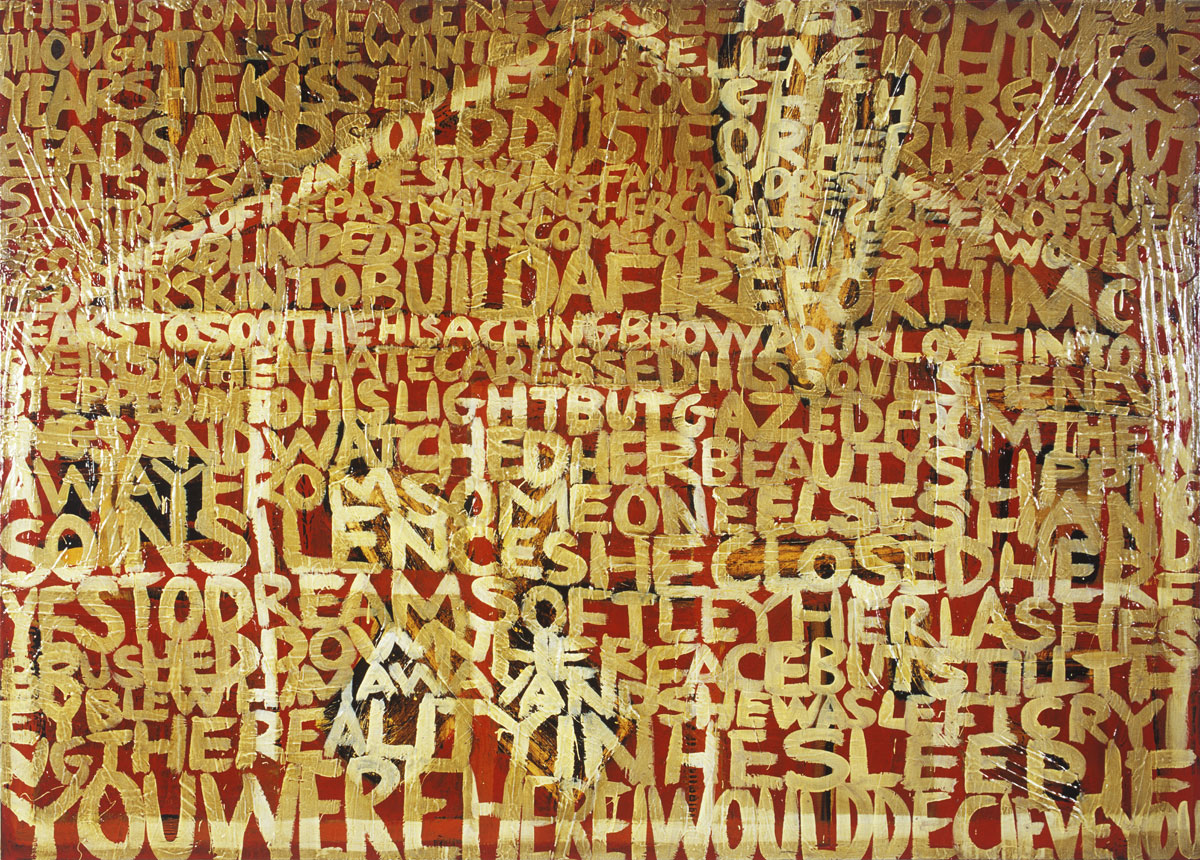 THEDUSTONHISFACENEVERSEEMEDTOMOVESHE
THOUGHTALLSHEWANTEDTOBELIEVEINHIMFOR
YEARSHEKISSEDHERBROUGHTHERGLASS
BEADSANDSOLDDUSTFORHERHAIRBUT
STILLSHESATINHESINKING
OFTHEPASTWALKINGHERCIRCLE
BLINDEDBYHISCOMEONSMILESHEWOULD
HERSKINTOBUILDAFIREFORHIM
TEARSTOSOOTHEHISACHINGBROWPOURLOVEINTO
WHENHATECARESSEDHISSOULSHENEV
ERSTEPPEDINTOHISLIGHTBUTGAZEDFROMTHE
ANDWATCHEDHERBEAUTYSLIPPIN
AWAYFROMSOMEONEELSESHAND
SOINSILENCESHECLOSEDHERE
YESTODREAMSOFTLEYHERLASHES
BRUSHED FACEBUTSTILLTH
EYBLEW AWAYANDSHEWASLEFTCRYI
NGTHEREALITYINHESLEEPIF
YOUWEREHEREIWOULDDECIEVEYOU